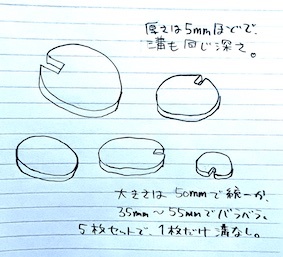 厚さは5mmほどで、
溝も同じ深さ。
大きさは50mmで統一か、
35mm〜55mmでバラバラ。
5枚セットで、1枚だけ溝なし。